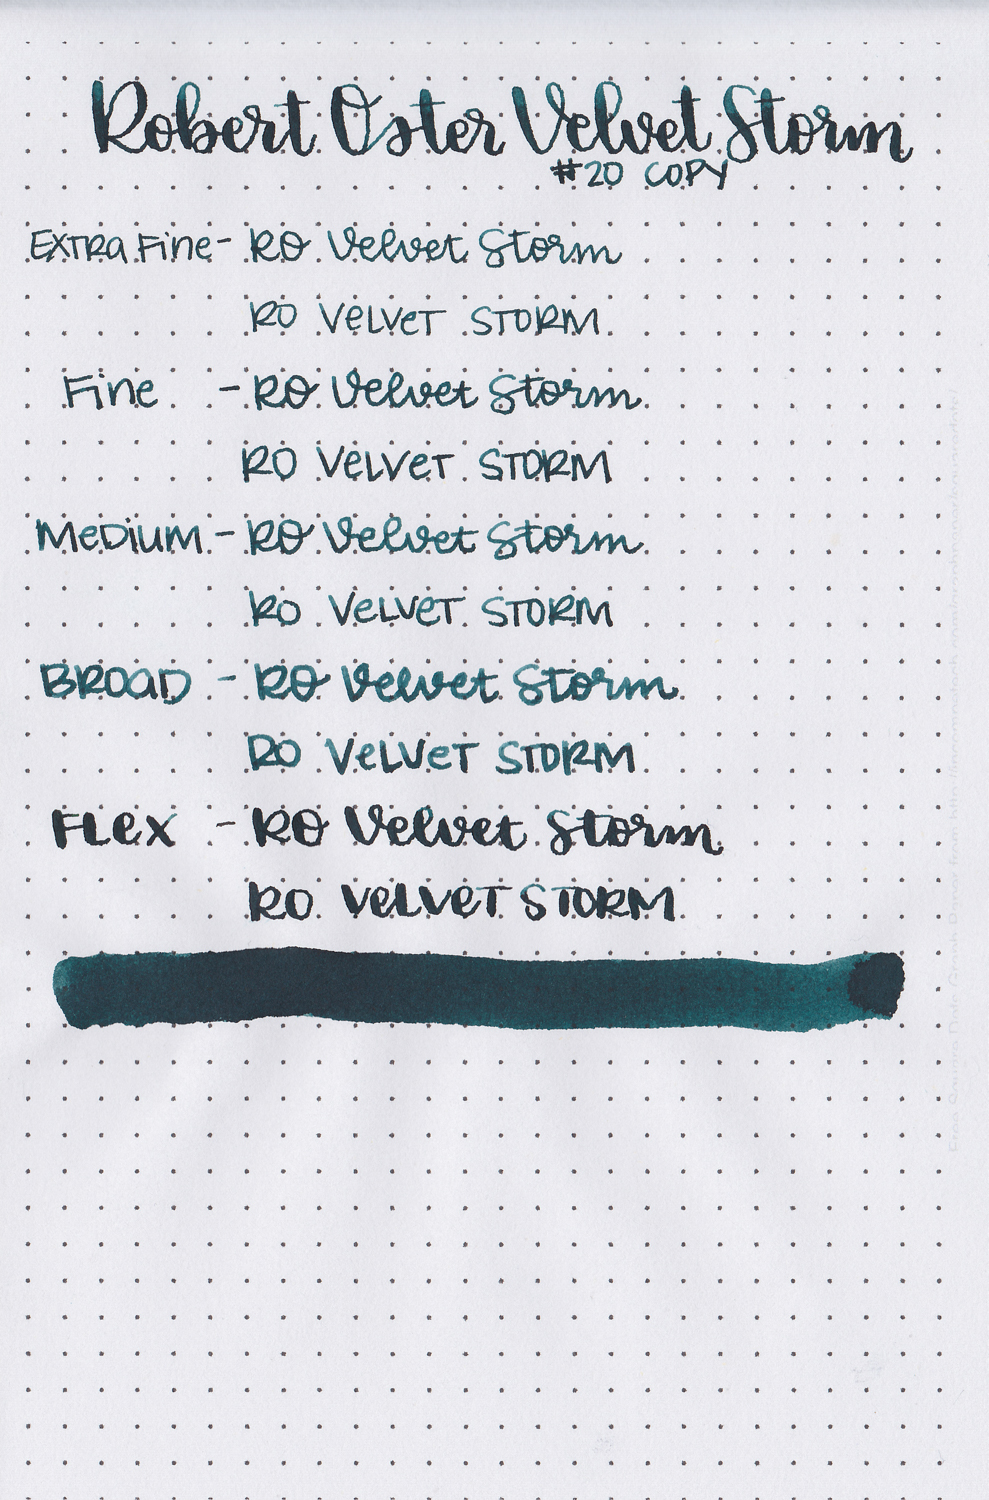 Robert Oster Velvet Storm
#20 COPY
Extra Fine - RO Velvet Storm
RO VeLVeT STORM
Fine - RO Velvet Storm
RO VeLVeT STORM
MeDiuM - RO Velvet Storm
RO VeLVeT STORM
BROaD - RO Velvet Storm
RO VeLVeT STORM
FLex - RO Velvet Storm
RO VeLVeT STORM